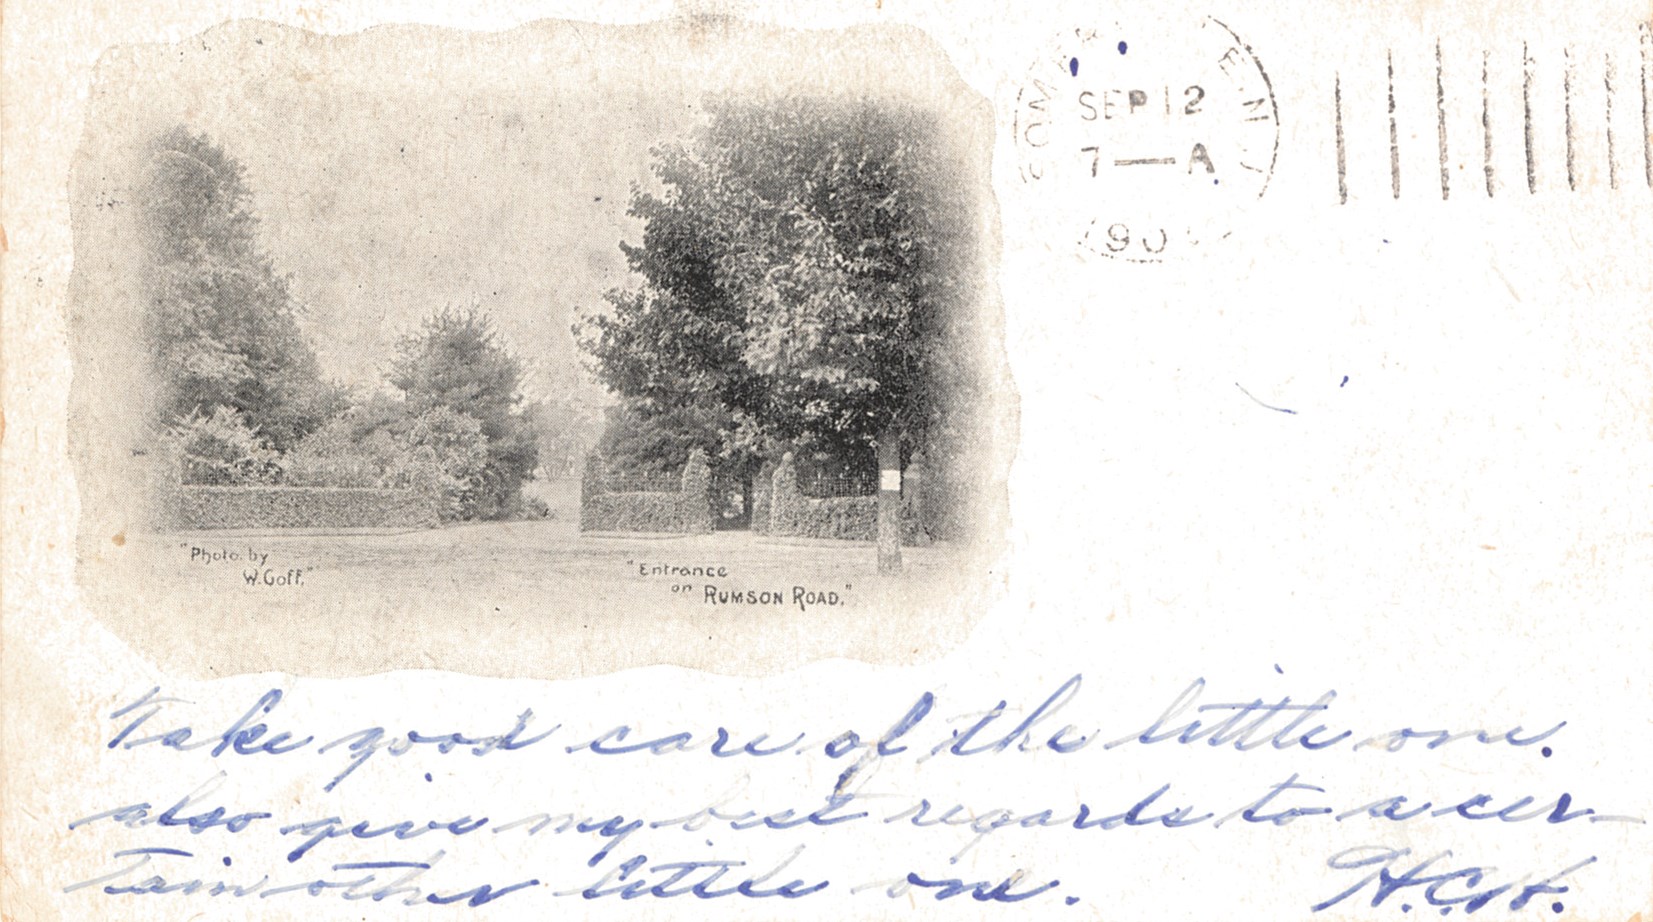 SEP 12
7 — A
190
"Photo. by
W. Goff."
"Entrance
on RUMSON ROAD."
Take good care of the little one.
also give my best regards to a cer-
tain other little one. H.C.H.